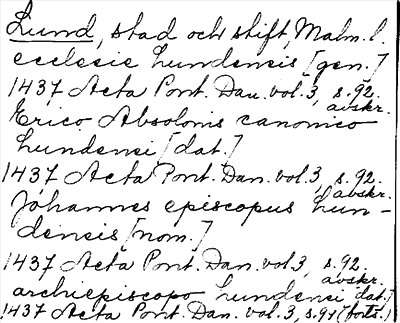 Lund, stad och stift, Malm. l.
ecclesie lundensis [gen.]
1437 Acta Pont. Dan. vol. 3, s. 92.
avskr.
Erico Absolonis canonico
lundensi [dat.]
1437 Acta Pont. Dan. vol. 3, s. 92.
avskr.
Johannes episcopus lun-
densis [nom.]
1437 Acta Pont. Dan. vol. 3, s. 92.
avskr.
archiepiscopo lundensi dat.]
1437 Acta Pont. Dan. vol. 3, s. 91 (forts.)